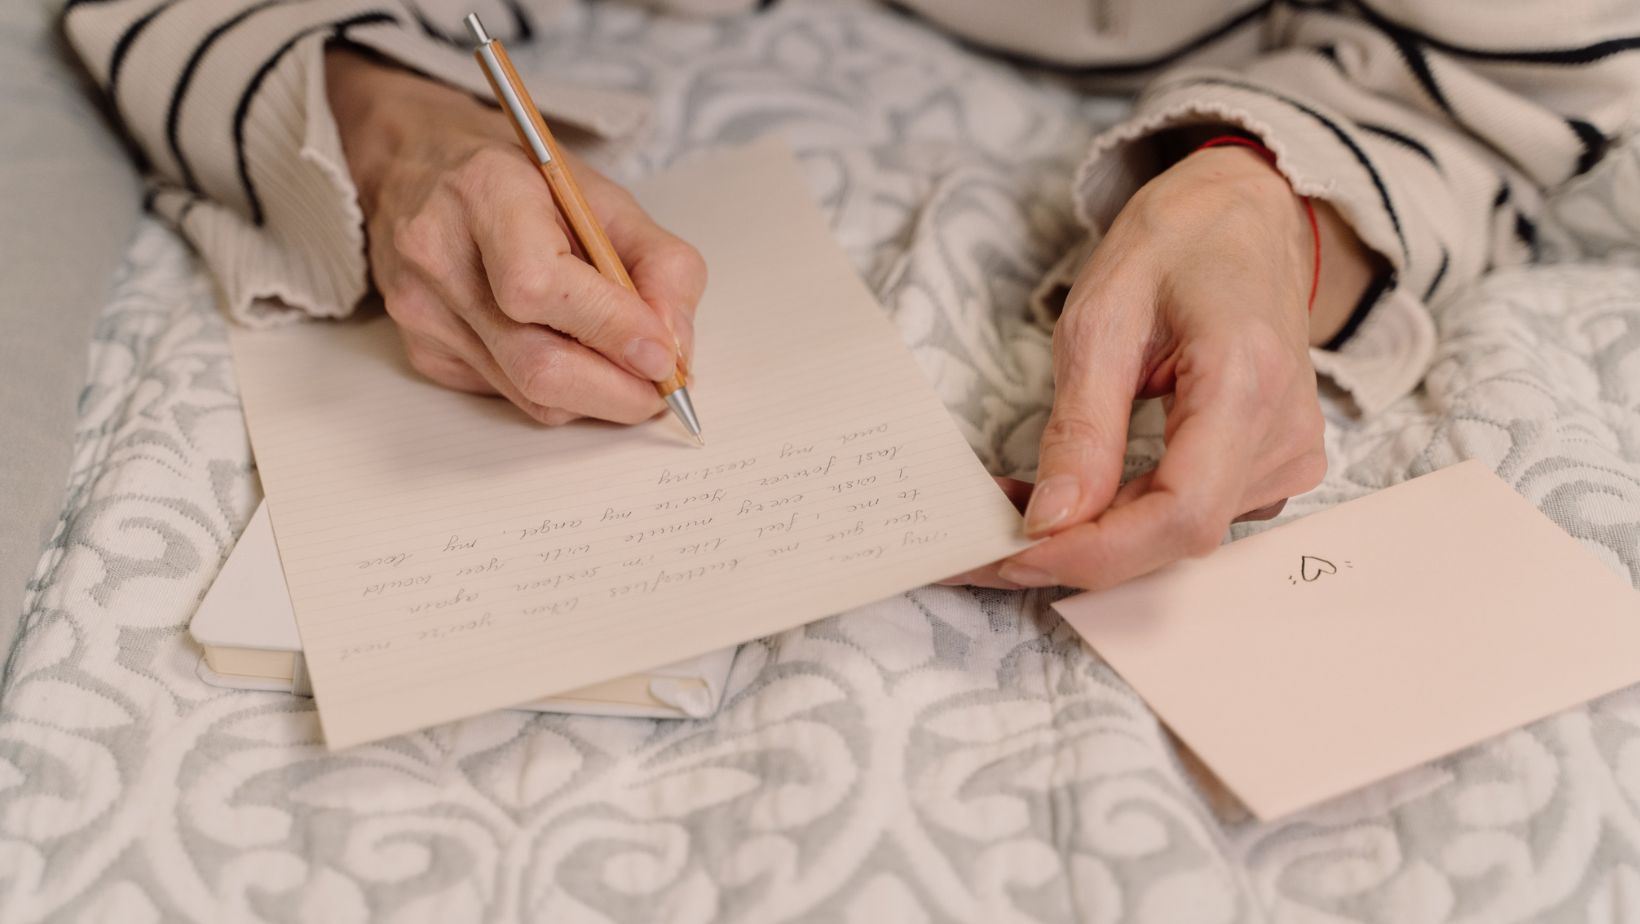 my love,
You give me butterflies when you're next
to me, i feel like i'm sexteen again.
I wish every minute with you would
last forever You're my angel, my love
and my destiny.